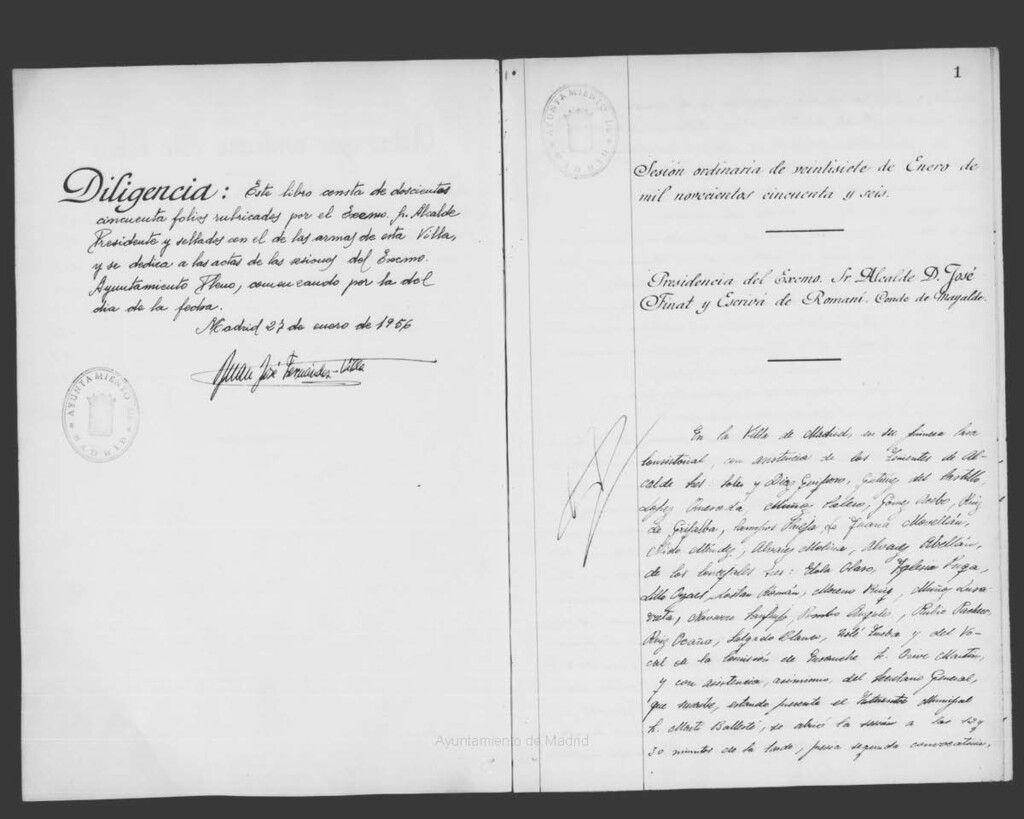 Diligencia: Este libro consta de doscientos
cincuenta folios rubricados por el Excmo. Sr. Alcalde
Presidente y sellados con el de las armas de esta Villa,
y se dedica a las actas de las sesiones del Excmo.
Ayuntamiento Pleno, comenzando por la del
día de la fecha.
Madrid 27 de enero de 1956
Juan José Fernández-Villa
AYUNTAMIENTO DE MADRID
1
AYUNTAMIENTO DE MADRID
Sesión ordinaria de veintisiete de Enero de
mil novecientos cincuenta y seis.
Presidencia del Excmo. Sr Alcalde D. José
Finat y Escrivá de Romaní. Conde de Mayalde.
En la Villa de Madrid, en su primera Casa
Consistorial, con asistencia de los Tenientes de Al-
calde Sres: Soler y Díaz Guijarro, Gutiérrez del Castillo,
López Quesada, Muñoz Calero, Gómez Acebo, Ruiz
de Grijalba, Campos Pareja, de Juana
Nido Méndez, Álvarez Molina, Álvarez Abellán,
de los Concejales Sres: Elola Olaso, Iglesias Puga,
Lillo Orzaes, Román, Moreno Ruiz, Muñoz
Navarro Sanjurjo, Rubio Pacheco,
Ruiz Ocaña, Salgado Blanco, y del Vo-
cal de la Comisión de Ensanche Sr. Martín,
y con asistencia, asimismo, del Secretario General,
que suscribe, estando presente el Interventor Municipal
Sr. Martí Ballesté, se abrió la sesión a las 12 y
30 minutos de la tarde, previa segunda convocatoria,
Ayuntamiento de Madrid